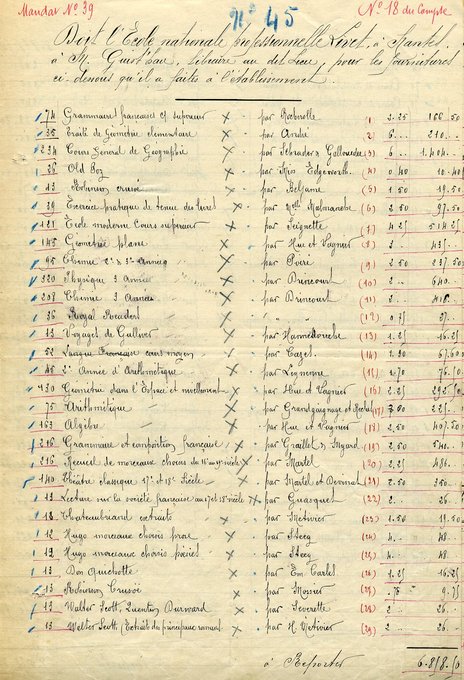 Mandat N° 39
N° 45
N° 18 du Compte
Doit l'Ecole nationale professionnelle Livet, à Nantes,
à M. Guist'hau, Libraire au dit Lieu, pour les fournitures
ci-dessous qu'il a faites à l'Etablissement.
74 Grammaire française C. supérieur × par Rabinolle (1) 2.25 166.50
35 Traité de Géométrie élémentaire × par André (2) 6 210
234 Cours Général de Géographie × par Schrader & Gallouédec (3) 6 1.404
26 Old Poz × par Miss Edgeworth (4) 0.40 10.40
13 Robinson crusoé × par Beljame (5) 1.50 19.50
39 Exercice pratique de tenue des livres × par Melle Malmanche (6) 2.50 97.50
121 Ecole moderne Cours supérieur × par Seignette (7) 4.25 514.25
145 Géométrie plane × par Hue et Vagnier (8) 3 435
95 Chimie 2e & 3e Années × par Poiré (9) 2.50 237.50
320 Physique 3 Années × par Drincourt (10) 2 640
208 Chimie 3 Années × par Drincourt (11) 2 416
36 Royal Readers × " " (12) 0.75 27
13 Voyages de Gulliver × par (13) 1.25 16.25
52 Langue Française cours moyen × par Cazes (14) 1.30 67.60
45 2e Année d'Arithmétique × par Leyssenne (15) 1.70 76.50
130 Géométrie dans l'Espace et nivellement × par Hue et Vagnier (16) 2.25 292.50
75 Arithmétique × par Grandguignage et (17) 3.00 225
163 Algèbre × par Hue et Vagnier (18) 2.50 407.50
216 Grammaire et composition française × par Graillot & Myard (19) 2.50 540
216 Recueil de morceaux choisis du 16e au 19e siècle × par Martel (20) 2.25 486
140 Théâtre classique 17e et 18e Siècle × par Martel et Devinat (21) 2.50 350
13 Lecture sur la société française aux 17 et 18e siècle × par Guasquet (22) 2 26
13 Chateaubriand extraits × par Métivier (23) 1.50 19.50
12 Hugo morceaux choisis prose × par Steeg (24) 4 48
12 Hugo morceaux choisis poésies × par Steeg (25) 4 48
13 Don Quichotte × par Em. Cartel (26) 1.25 16.25
13 Robinson Crusoé × par Mossier (27) .75 9.75
13 Walter Scott, Quentin Durward × par Severette (28) 2 26
13 Walter Scott (Extraits des principaux romans) × par H. Métivier (29) 2 26
à Reporter 6.858.50